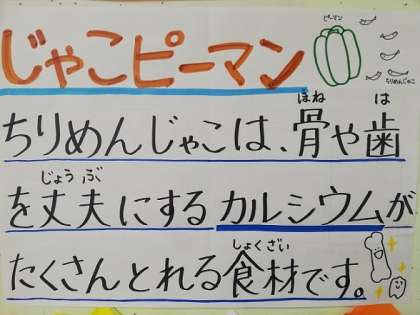 じゃこピーマン
ピーマン
ちりめんじゃこ
ほね は
ちりめんじゃこは、骨や歯
じょうぶ
を丈夫にするカルシウムが
しょくざい
たくさんとれる食材です。